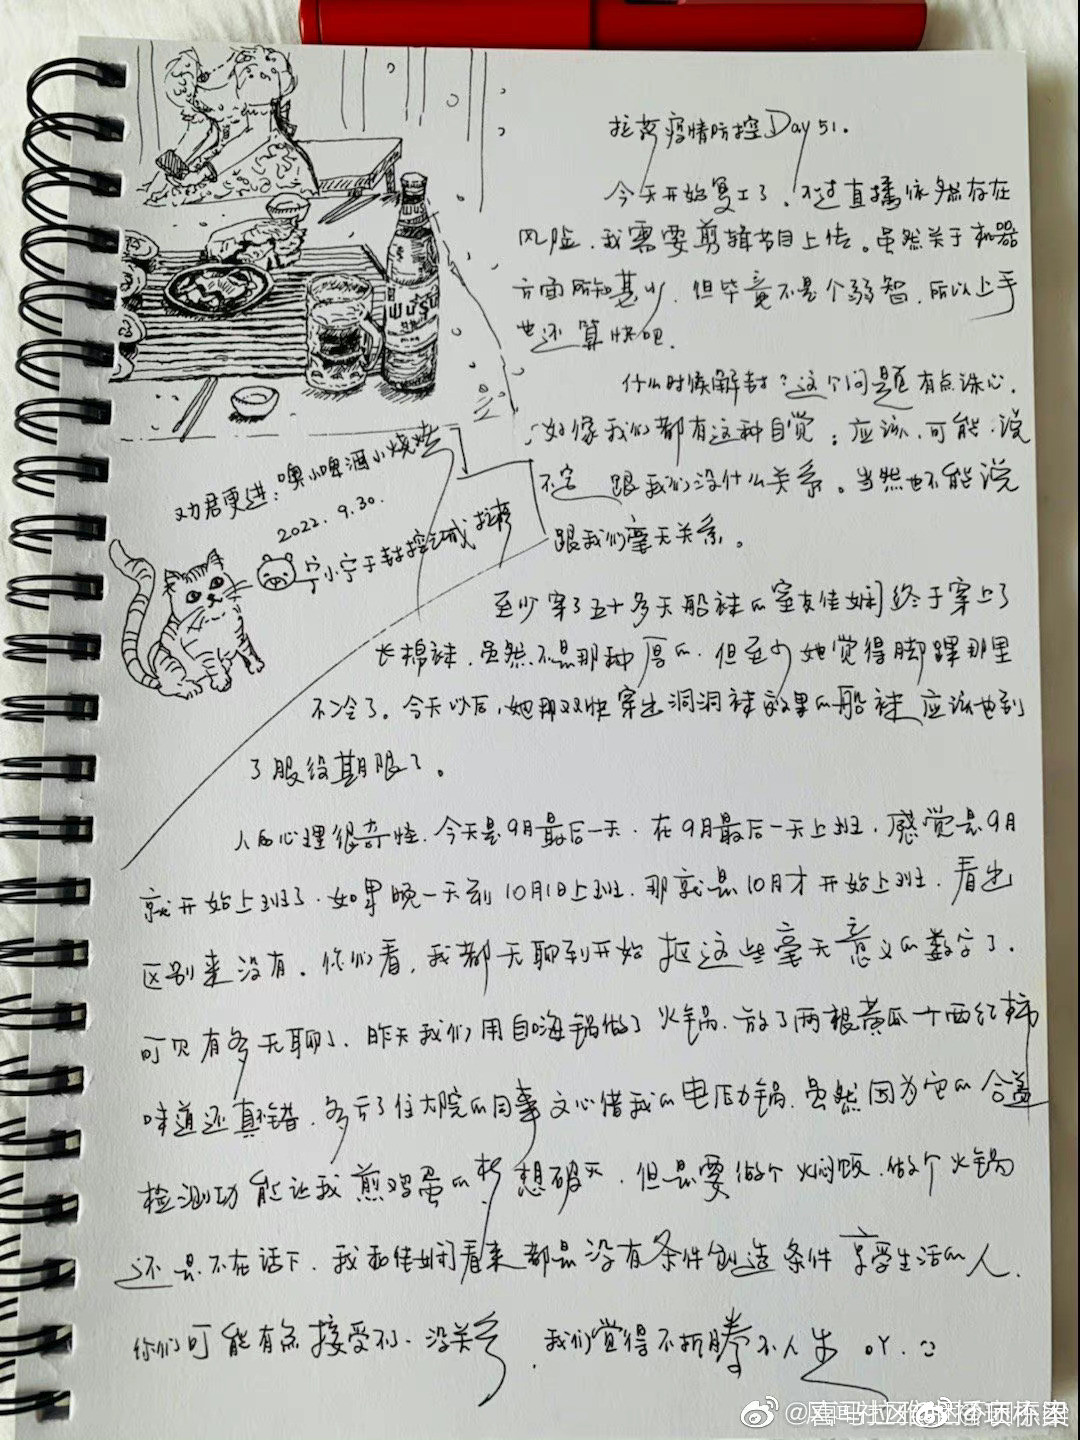 拉萨疫情防控Day 51.
今天开始复工了.不过直播依然存在
风险.我需要剪辑节目上传。虽然关于机器
方面所知甚少,但毕竟不是个弱智,所以上手
也还算快吧.
什么时候解封?这个问题有点诛心.
好像我们都有这种自觉:应该.可能.说
不定 跟我们没什么关系。当然也不能说
跟我们毫无关系。
劝君更进:噢小啤酒小烧烤
2022.9.30.
宁小宁于封控之城 拉萨
WUSU
至少穿了五十多天船袜的室友佳娴终于穿上了
长棉袜.虽然不是那种厚的.但至少她觉得脚踝那里
不冷了。今天以后,她那双快穿出洞洞袜效果的船袜应该也到
了服役期限了。
人的心理很奇怪.今天是9月最后一天.在9月最后一天上班.感觉是9月
就开始上班了.如果晚一天到10月1日上班.那就是10月才开始上班.看出
区别来没有.你们看,我都无聊到开始抠这些毫无意义的数字了.
可见有多无聊了.昨天我们用自嗨锅做了火锅.放了两根黄瓜+西红柿
味道还真不错.多亏了住大院的同事文心借我的电压力锅.虽然因为它的合盖
检测功能让我煎鸡蛋的梦想破灭.但是要做个焖饭.做个火锅
还是不在话下.我和佳娴看来都是没有条件创造条件享受生活的人.
你们可能有点接受不了.没关系.我们觉得不折腾不人生 OY.